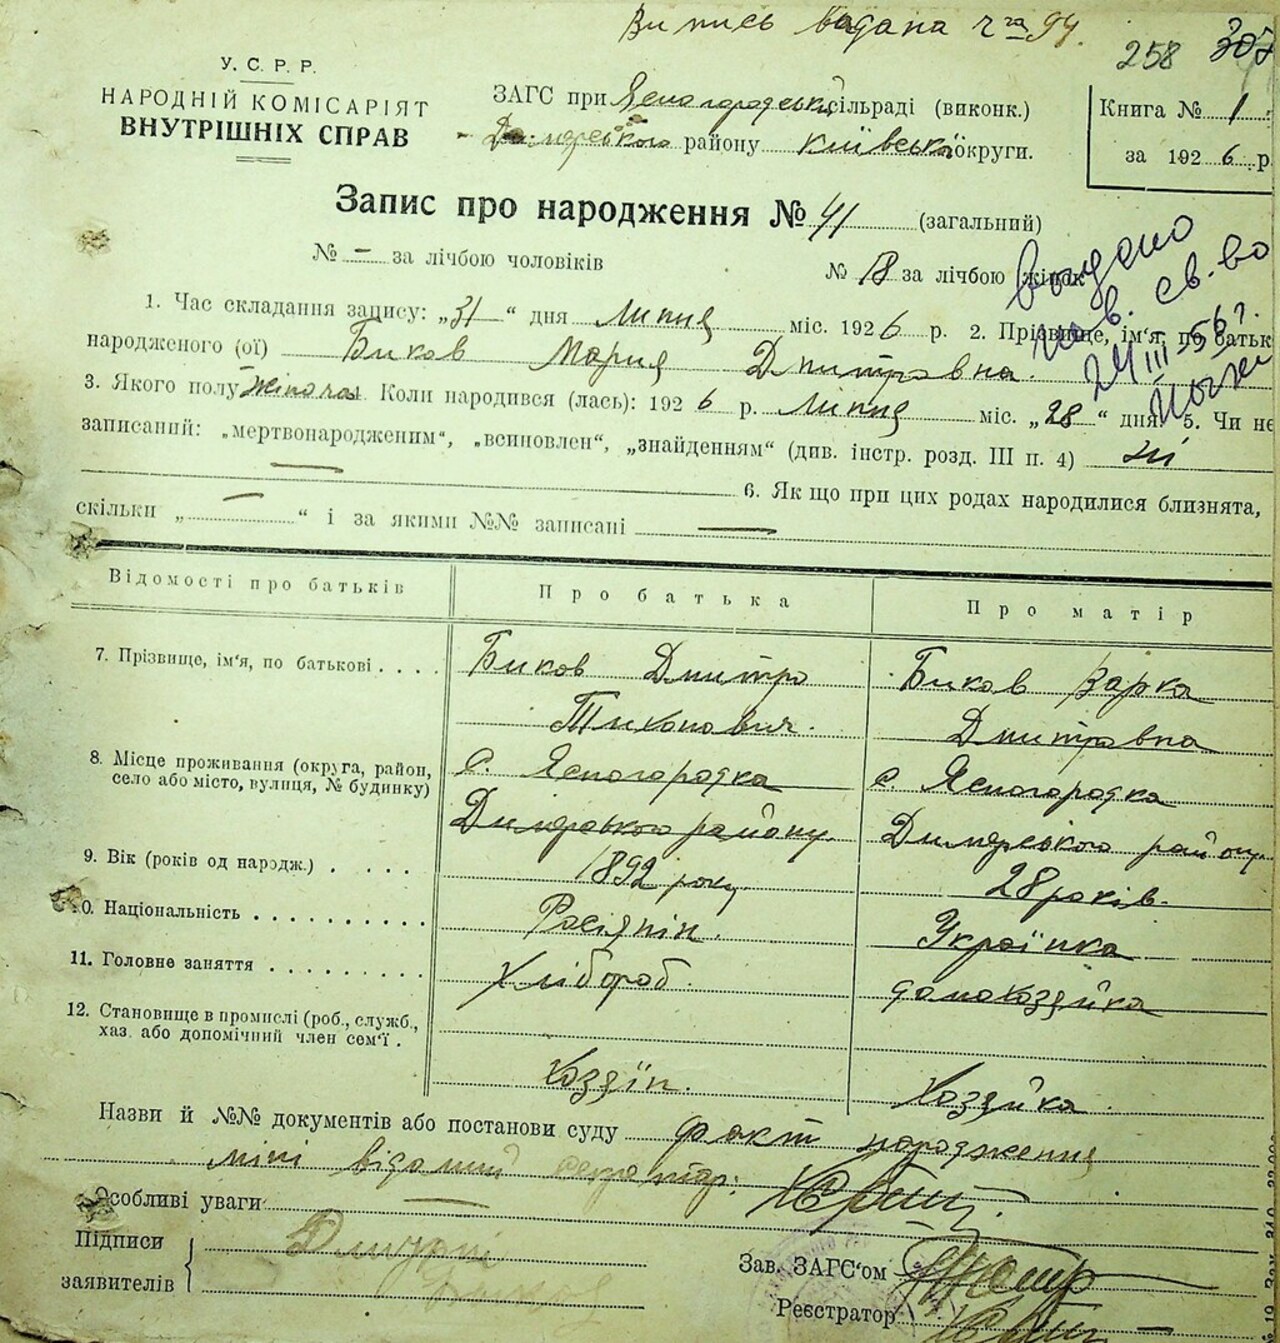 Випись видана
258
307
У. С. Р. Р.
НАРОДНІЙ КОМІСАРІЯТ
ВНУТРІШНІХ СПРАВ
ЗАГС при Ясногородській сільраді (виконк.)
Димерського району Київської округи.
Книга № 1
за 1926 р.
Запис про народження № 41 (загальний)
№ – за лічбою чоловіків
№ 18 за лічбою жінок
Выдано
пов. св-во
24 III 56 г.
1. Час складання запису: „31" дня Липня міс. 1926 р. 2. Прізвище, ім'я, по батьк
народженого (ої) Биков Мария Дмитровна.
3. Якого полу жіночая Коли народився (лась): 1926 р. Липня міс. „28" дня. 5. Чи не
записаний: „мертвонародженим", „всиновлен", „знайденням" (див. інстр. розд. III п. 4) ні
— 6. Як що при цих родах народилися близнята,
скільки „ — " і за якими №№ записані —
Відомості про батьків
Про батька
Про матір
7. Прізвище, ім'я, по батькові . . . .
Биков Дмитро
Тихонович.
Биков Варка
Дмитровна
8. Місце проживання (округа, район,
село або місто, вулиця, № будинку)
с. Ясногородка
Димерського району.
с. Ясногородка
Димерського району.
9. Вік (років од народж.) . . . .
1892 року
28 років.
0. Національність . . . . . . . . . .
Росіянін.
Українка
11. Головне заняття . . . . . . . . .
Хлібороб.
домохозяйка
12. Становище в промислі (роб., служб.,
хаз. або допомічний член сем'ї .
Хозяїн.
Хозяйка.
Назви й №№ документів або постанови суду факт народження
міні відомий секретар:
Особливі уваги —
Підписи
заявителів
Зав. ЗАГС'ом
Реєстратор